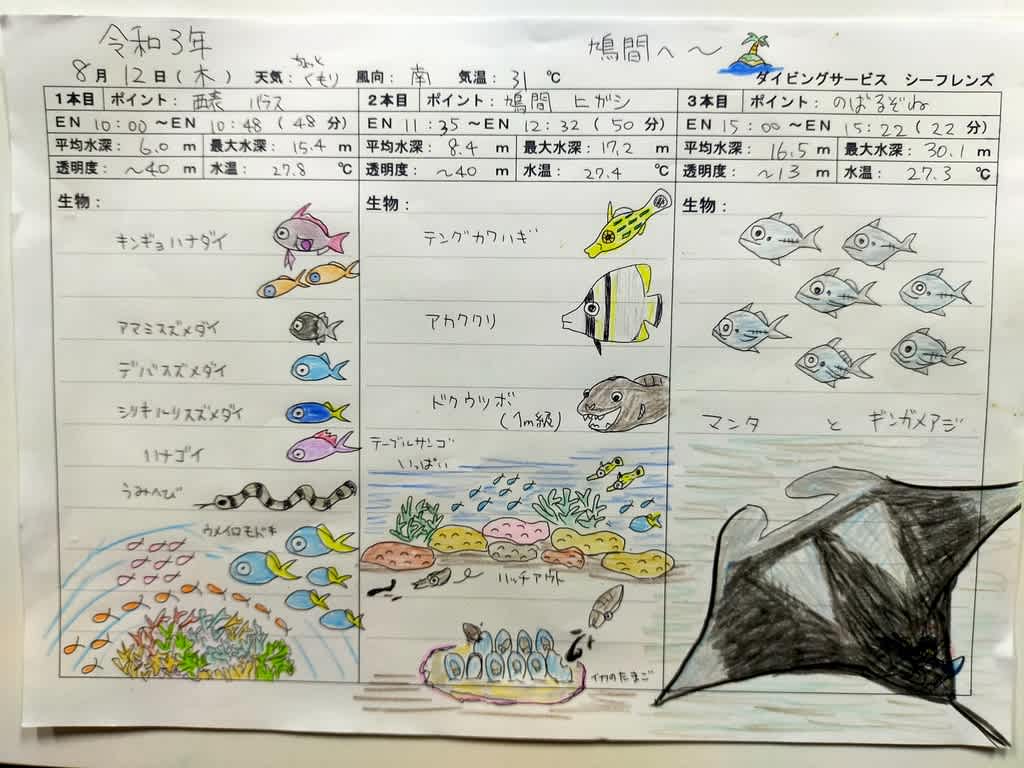 令和3年
鳩間へ〜
8月12日(木) 天気:ちょっとくもり 風向:南 気温:31℃ ダイビングサービス シーフレンズ
1本目 ポイント:西表 パラス
EN 10:00 〜EN 10:48 (48分)
平均水深:6.0 m 最大水深:15.4 m
透明度:〜40 m 水温:27.8 ℃
生物:
キンギョハナダイ
アマミスズメダイ
デバスズメダイ
シリキルリスズメダイ
ハナゴイ
うみへび
ウメイロモドキ
2本目 ポイント:鳩間 ヒガシ
EN 11:35 〜EN 12:32 (50分)
平均水深:8.4 m 最大水深:17.2 m
透明度:〜40 m 水温:27.4 ℃
生物:
テングカワハギ
アカククリ
ドクウツボ
(1m級)
テーブルサンゴ
いっぱい
ハッチアウト
イカのたまご
3本目 ポイント:のばるぞね
EN 15:00 〜EN 15:22 (22分)
平均水深:16.5 m 最大水深:30.1 m
透明度:〜13 m 水温:27.3 ℃
生物:
マンタ と ギンガメアジ